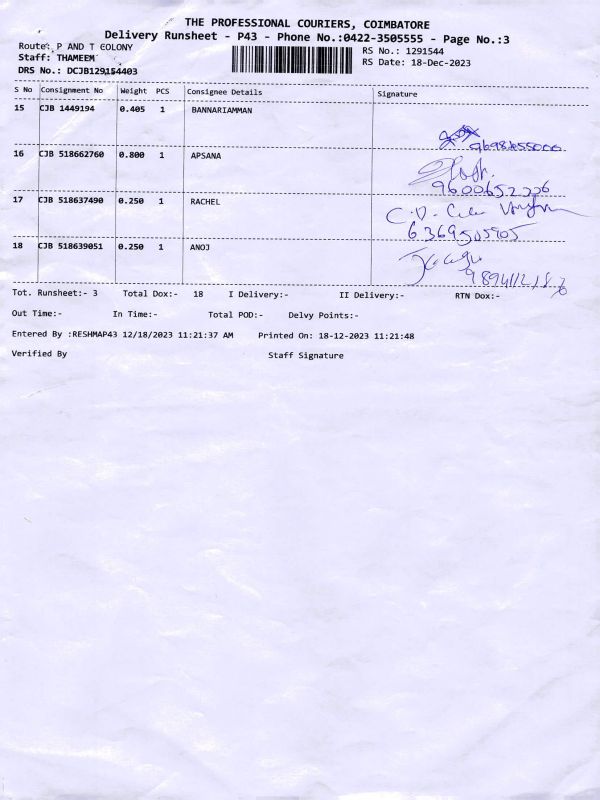 THE PROFESSIONAL COURIERS, COIMBATORE
Delivery Runsheet - P43 - Phone No.:0422-3505555 - Page No.:3
Route: P AND T COLONY
RS No.: 1291544
Staff: THAMEEM
RS Date: 18-Dec-2023
DRS No.: DCJB129154403
S No Consignment No Weight PCS Consignee Details Signature
15 CJB 1449194 0.405 1 BANNARIAMMAN
16 CJB 518662760 0.800 1 APSANA
9600652226
17 CJB 518637490 0.250 1 RACHEL
6369505905
18 CJB 518639051 0.250 1 ANOJ
Tot. Runsheet:- 3 Total Dox:- 18 I Delivery:- II Delivery:- RTN Dox:-
Out Time:- In Time:- Total POD:- Delvy Points:-
Entered By :RESHMAP43 12/18/2023 11:21:37 AM Printed On: 18-12-2023 11:21:48
Verified By Staff Signature